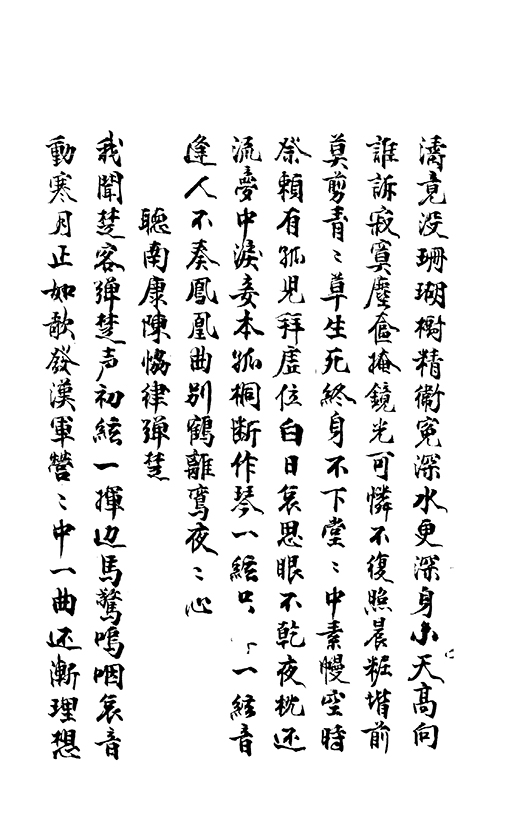 濤竟没珊瑚樹精衛冤深水更深身小天高向
誰訴寂寞塵奩掩鏡光可憐不復照晨粧堦前
莫剪青〻草生死終身不下堂〻中素幔空時
祭賴有孤児拜虚位白日哀思眼不乾夜枕还
流夢中淚妾本孤桐断作琴一絃只一絃音
逢人不奏鳳凰曲别鶴離鸞夜〻心
聴南康陳協律弹楚
我聞楚客弹楚声初絃一揮边馬驚嗚咽哀音
動寒月正如歌發漢軍營〻中一曲还漸理想